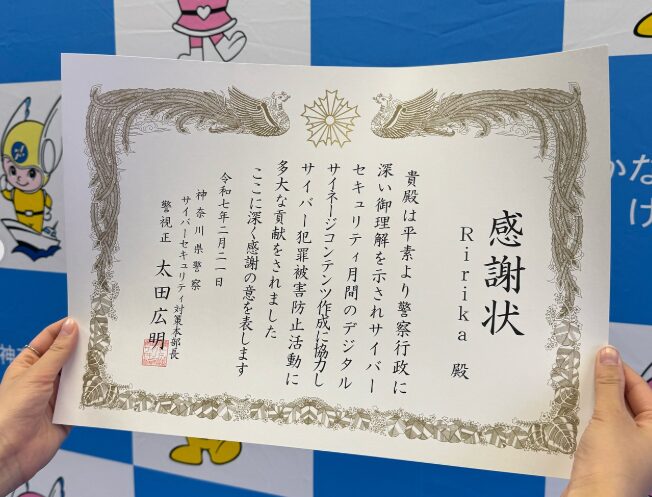 感謝状
Ririka 殿
貴殿は平素より警察行政に
深い御理解を示されサイバー
セキュリティ月間のデジタル
サイネージコンテンツ作成に協力し
サイバー犯罪被害防止活動に
多大な貢献をされました
ここに深く感謝の意を表します
令和七年二月二一日
神奈川県警察
サイバーセキュリティ対策本部長
警視正 太田広明
かな
け
神奈